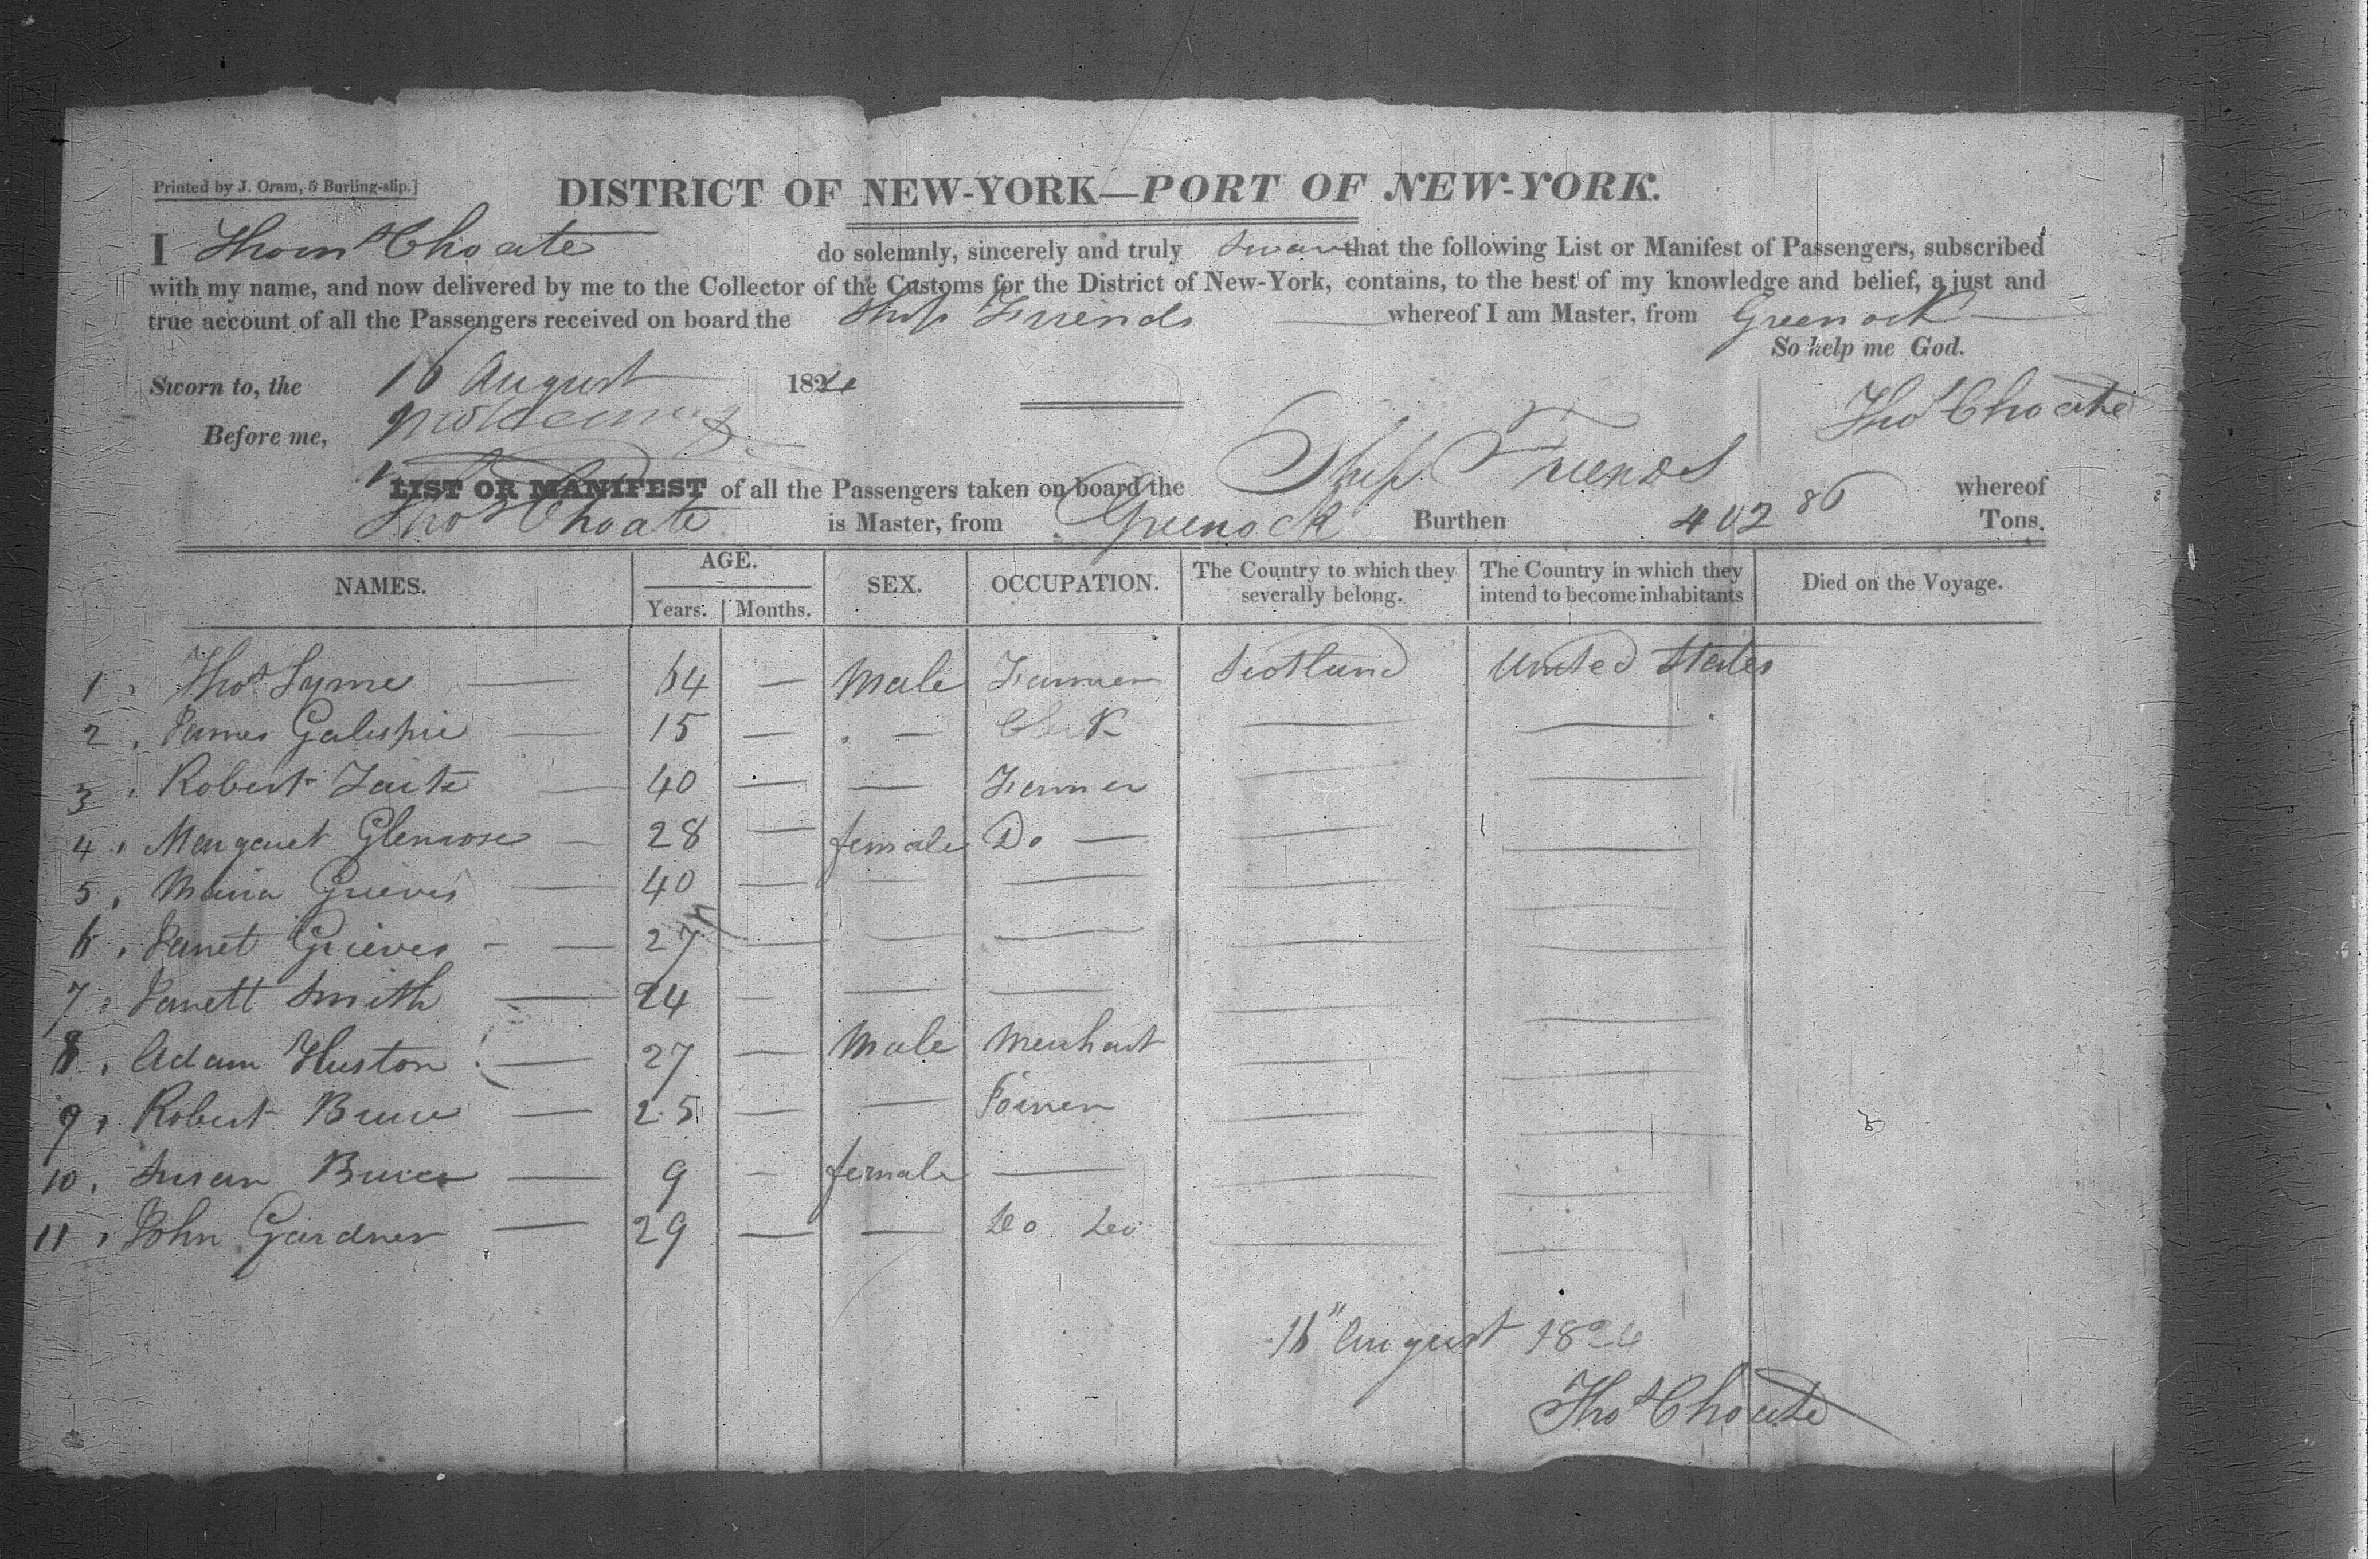 Printed by J. Oram, 5 Burling-slip.]
DISTRICT OF NEW-YORK—PORT OF NEW-YORK.
I Thoms Choate do solemnly, sincerely and truly Swear that the following List or Manifest of Passengers, subscribed
with my name, and now delivered by me to the Collector of the Customs for the District of New-York, contains, to the best of my knowledge and belief, a just and
true account of all the Passengers received on board the Ship Friends whereof I am Master, from Greenock
So help me God.
Sworn to, the 16 August 1824
Thos Choate
Before me,
LIST OR MANIFEST of all the Passengers taken on board the Ship Friends whereof
Thos Choate is Master, from Greenock Burthen 402 86 Tons.
NAMES. AGE. Years. Months. SEX. OCCUPATION. The Country to which they severally belong. The Country in which they intend to become inhabitants Died on the Voyage.
1. Thos Syme — 64 — Male Farmer Scotland United States
2. James Galespie — 15 — . — Clerk — —
3. Robert Tait — 40 — — Farmer — —
4. Margaret Glenrose — 28 — female Do — — —
5. Maria Grieves — 40 — — — — —
6. Janet Grieves - — 27 — — — — —
7. Janett Smith — 24 — — — — —
8. Adam Huston — 27 — Male Merchant — —
9. Robert Bruce — 25 — — Joiner — —
10. Susan Bruce — 9 - female — — —
11. John Gardner — 29 — — Do Do — —
16" August 1824
Thos Choate